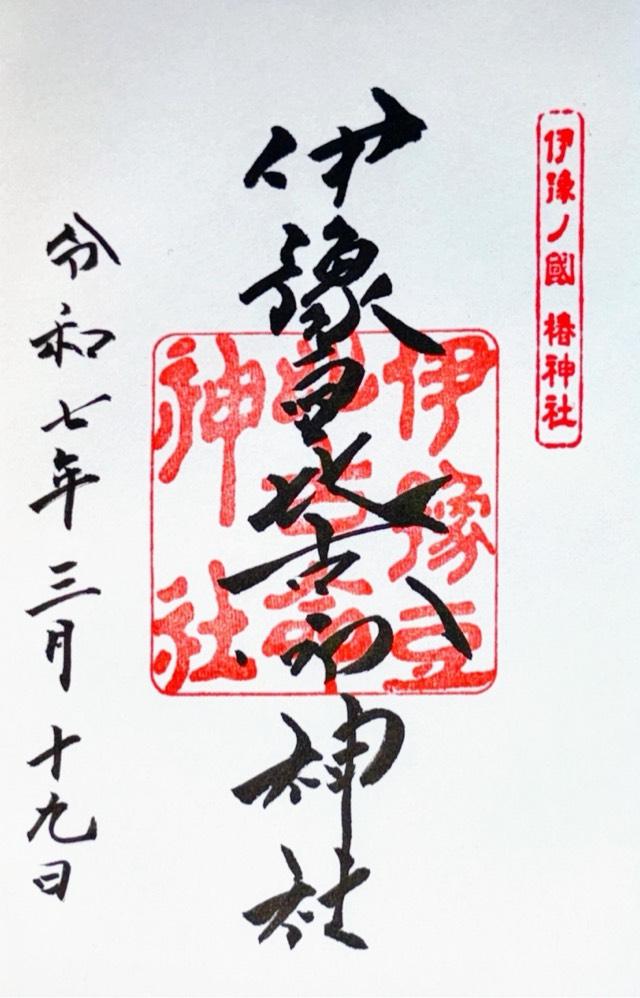 伊豫ノ國 椿神社
伊豫豆比古命神社
伊豫豆
比古命
神社
令和七年三月十九日